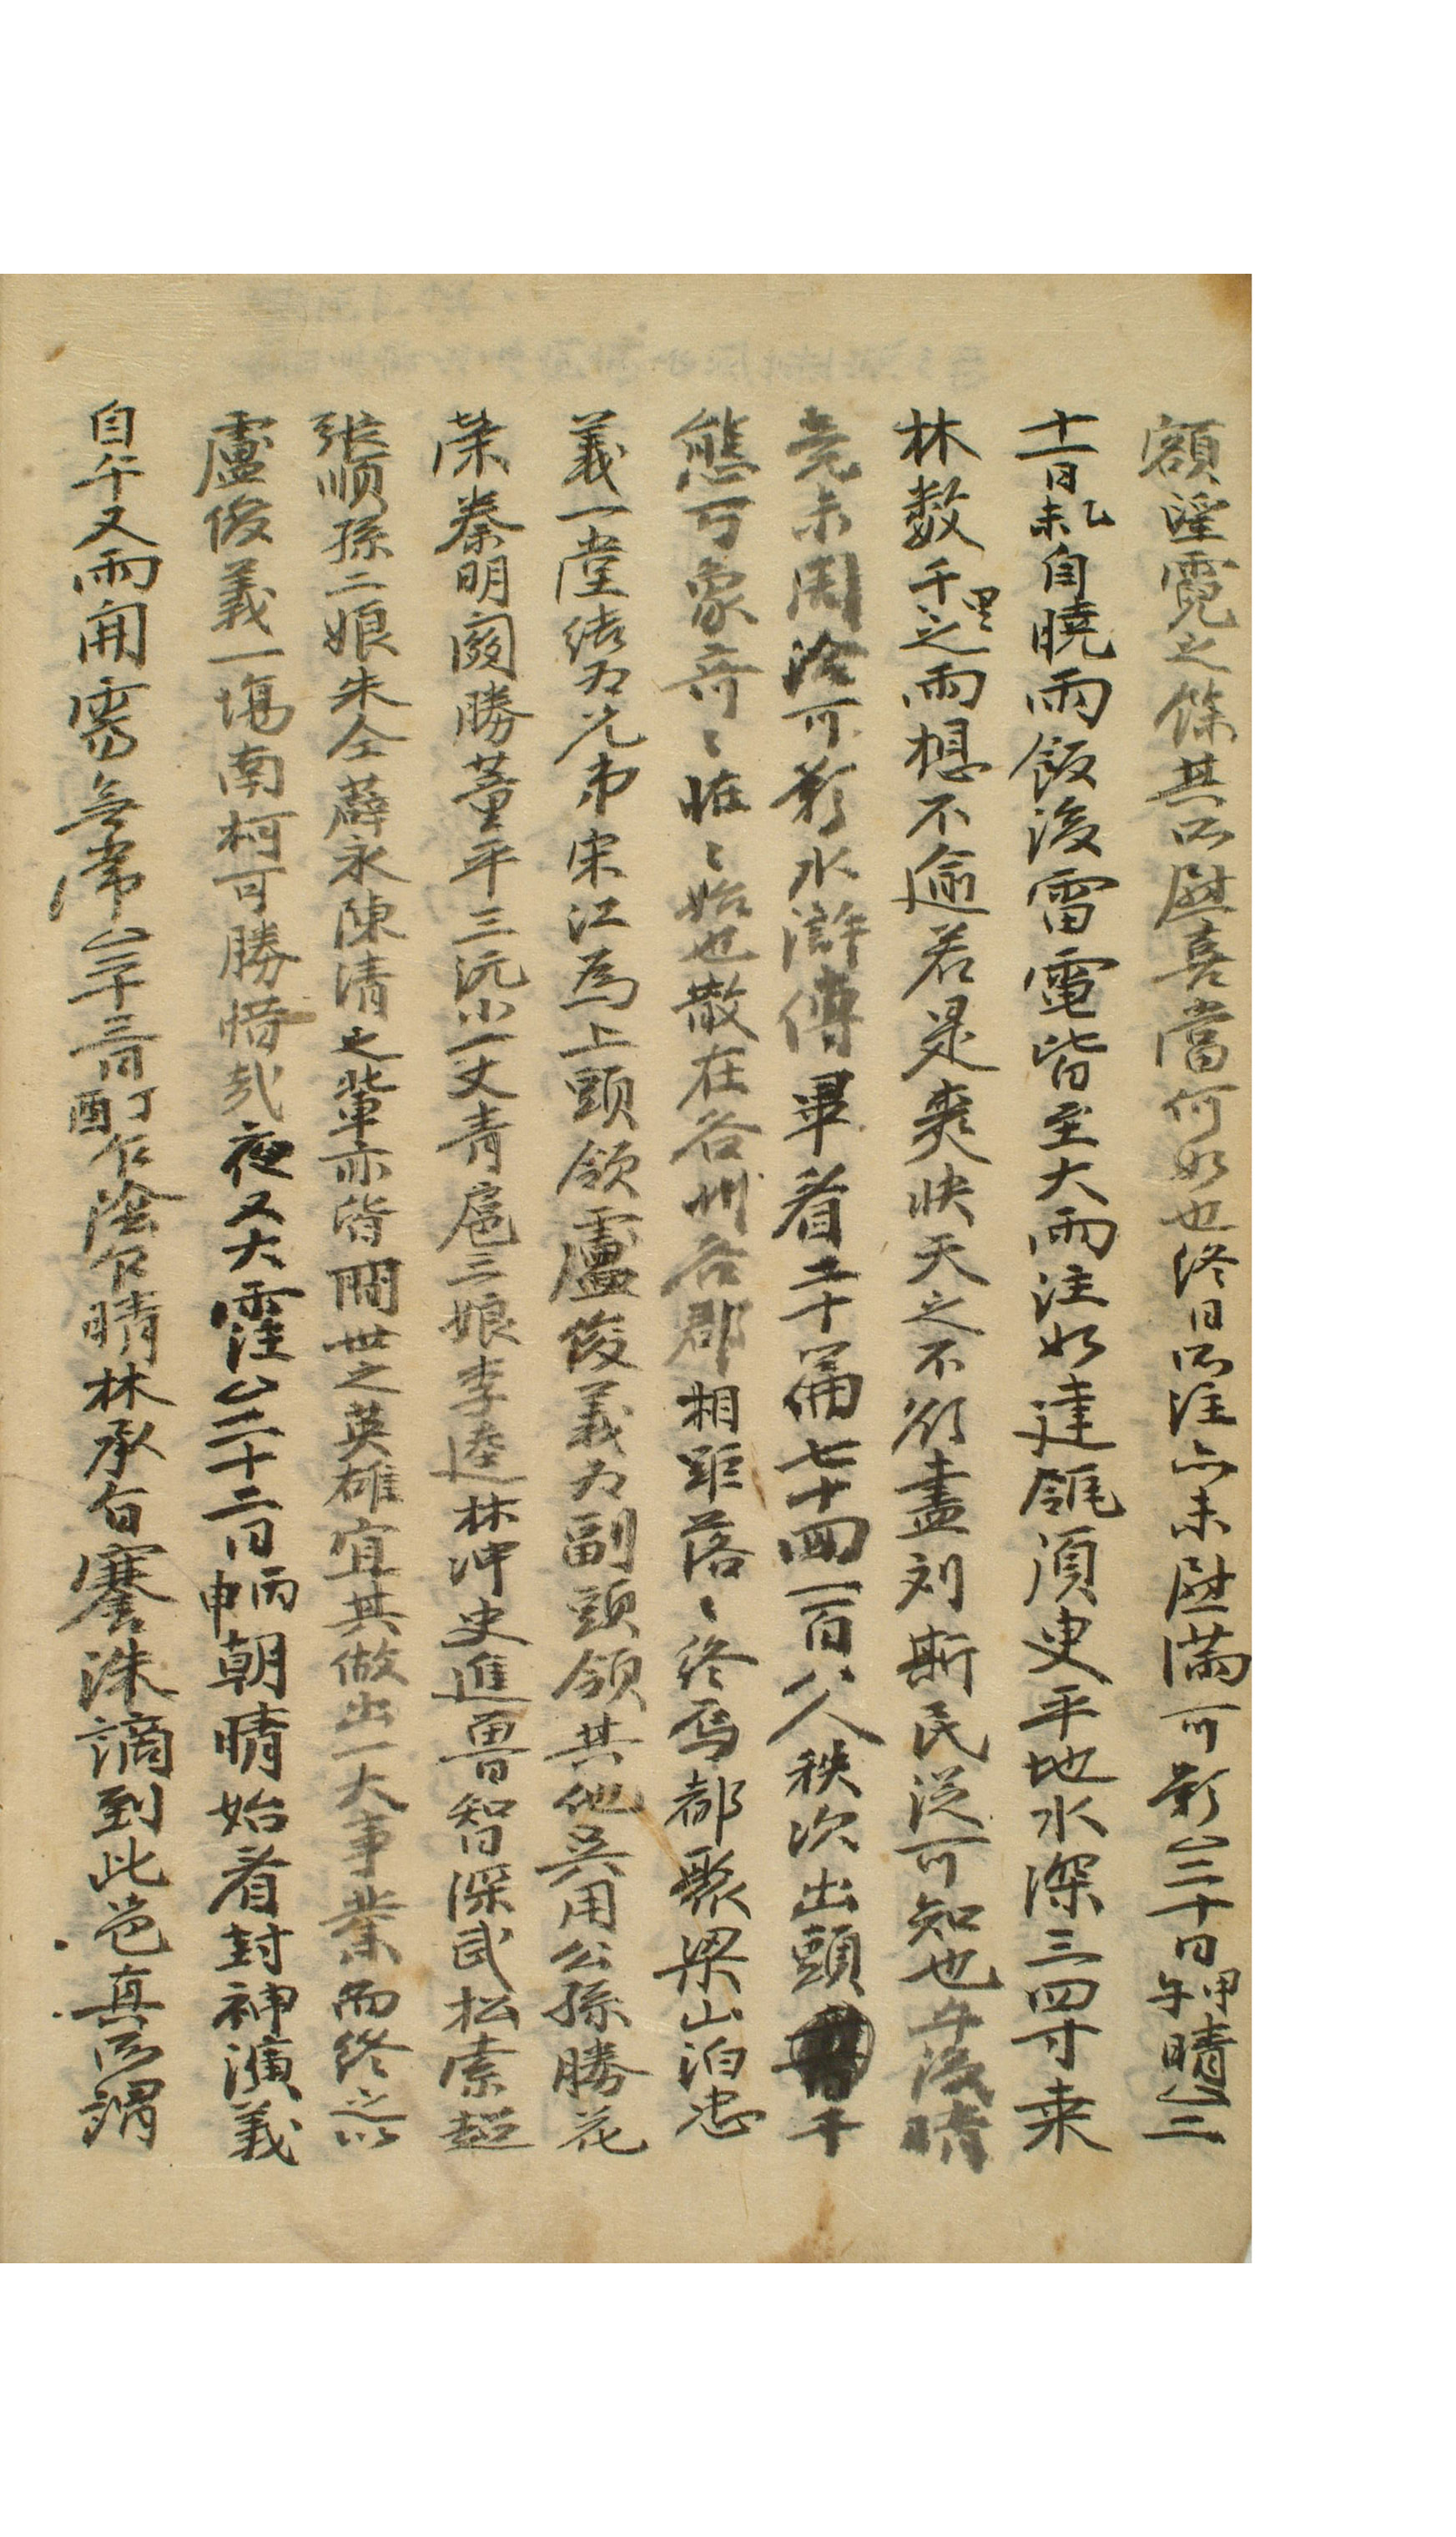 額望霓之餘其所慰喜當何如也終日所注亦未慰滿可歎△二十日甲午晴△二
十一日乙未自曉雨飯後雷電皆至大雨注如建瓴須臾平地水深三四寸来
林数千里之雨想不逾若是爽快天之不欲盡刘斯民従可知也午後晴
竟未周洽可歎水滸傳畢看二十篇七十四一百八人秩次出頭千
態可象奇〻恠〻始也散在各州各郡相距落〻終焉都聚梁山泊忠
義一堂结为兄弟宋江爲上頭領盧俊義为副頭領其他吳用公孫勝花
荣秦明関勝董平三阮小一丈青扈三娘李逵林冲史進魯智深武松索超
張顺孫二娘朱仝薜永陳清之輩亦皆間世之英雄宜其做出一大事業而終之以
盧俊義一塲南柯可勝惜哉夜又大霔△二十二日丙申朝晴始看封神演義
自午又雨開霱無常△二十三日丁酉乍陰乍晴林承旨謇洙謫到此邑真所謂